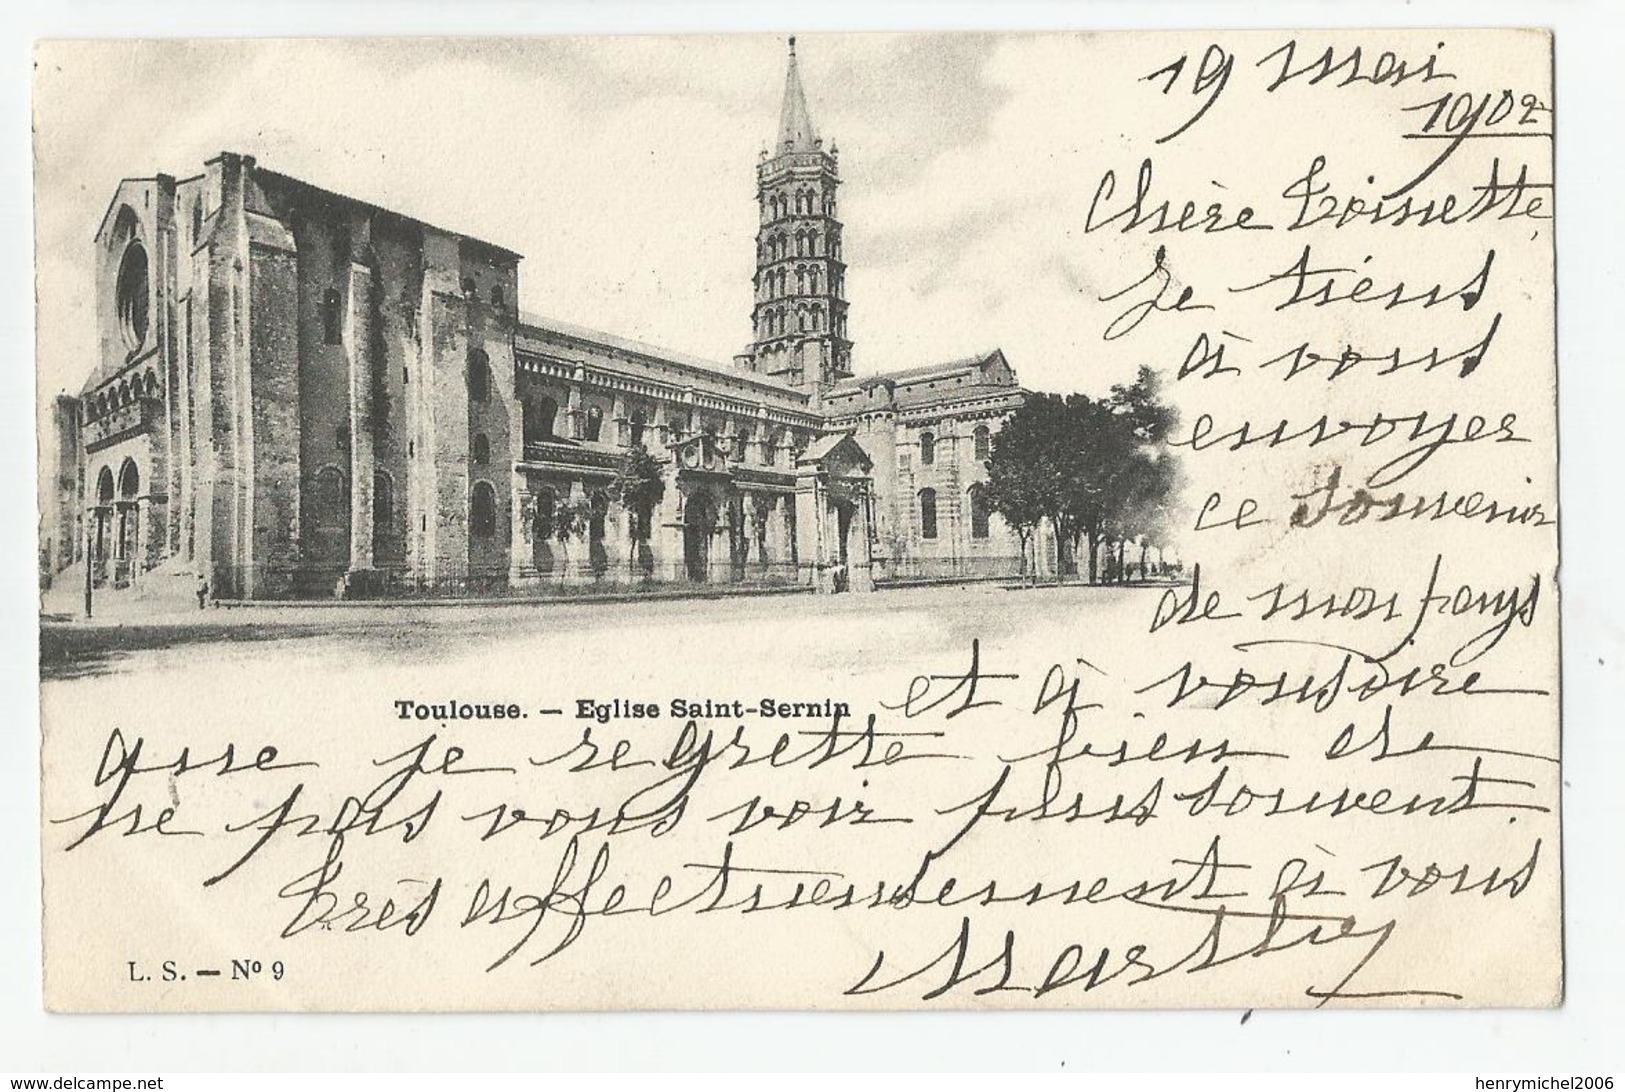 19 mai
1902
Chère Toinette,
Je tiens
à vous
envoyer
ce souvenir
de mon pays
et à vous dire
que je regrette bien de
ne pas vous voir plus souvent.
très affectueusement à vous
Marthy
Toulouse. — Eglise Saint-Sernin
L. S. — Nº 9
www.delcampe.net
henrymichel2006